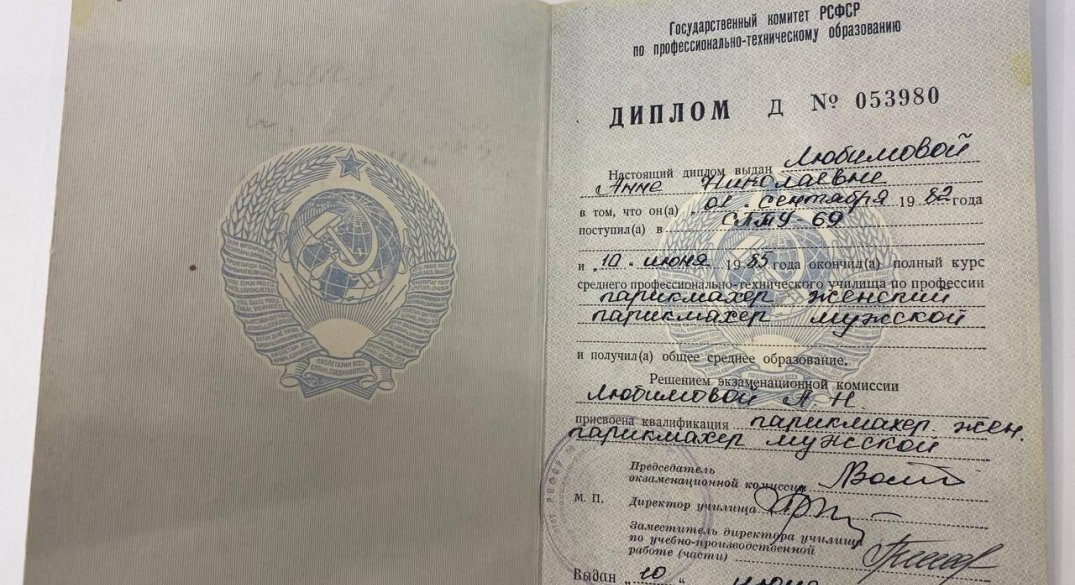 Государственный комитет РСФСР
по профессионально-техническому образованию
ДИПЛОМ Д № 053980
Настоящий диплом выдан Любимовой
Анне Николаевне
в том, что он(а) „01 " сентября 1982 года
поступил(а) в СПТУ 69
и „10 " июня 1985 года окончил(а) полный курс
среднего профессионально-технического училища по профессии
парикмахер женский
парикмахер мужской
и получил(а) общее среднее образование.
Решением экзаменационной комиссии
Любимовой А Н
присвоена квалификация парикмахер жен.
парикмахер мужской
Председатель
экзаменационной комиссии
М. П. Директор училища
Заместитель директора училища
по учебно-производственной
работе (части)
Выдан „10 " июня
ПРОЛЕТАРИИ ВСЕХ
СТРАН, СОЕДИНЯЙТЕСЬ!